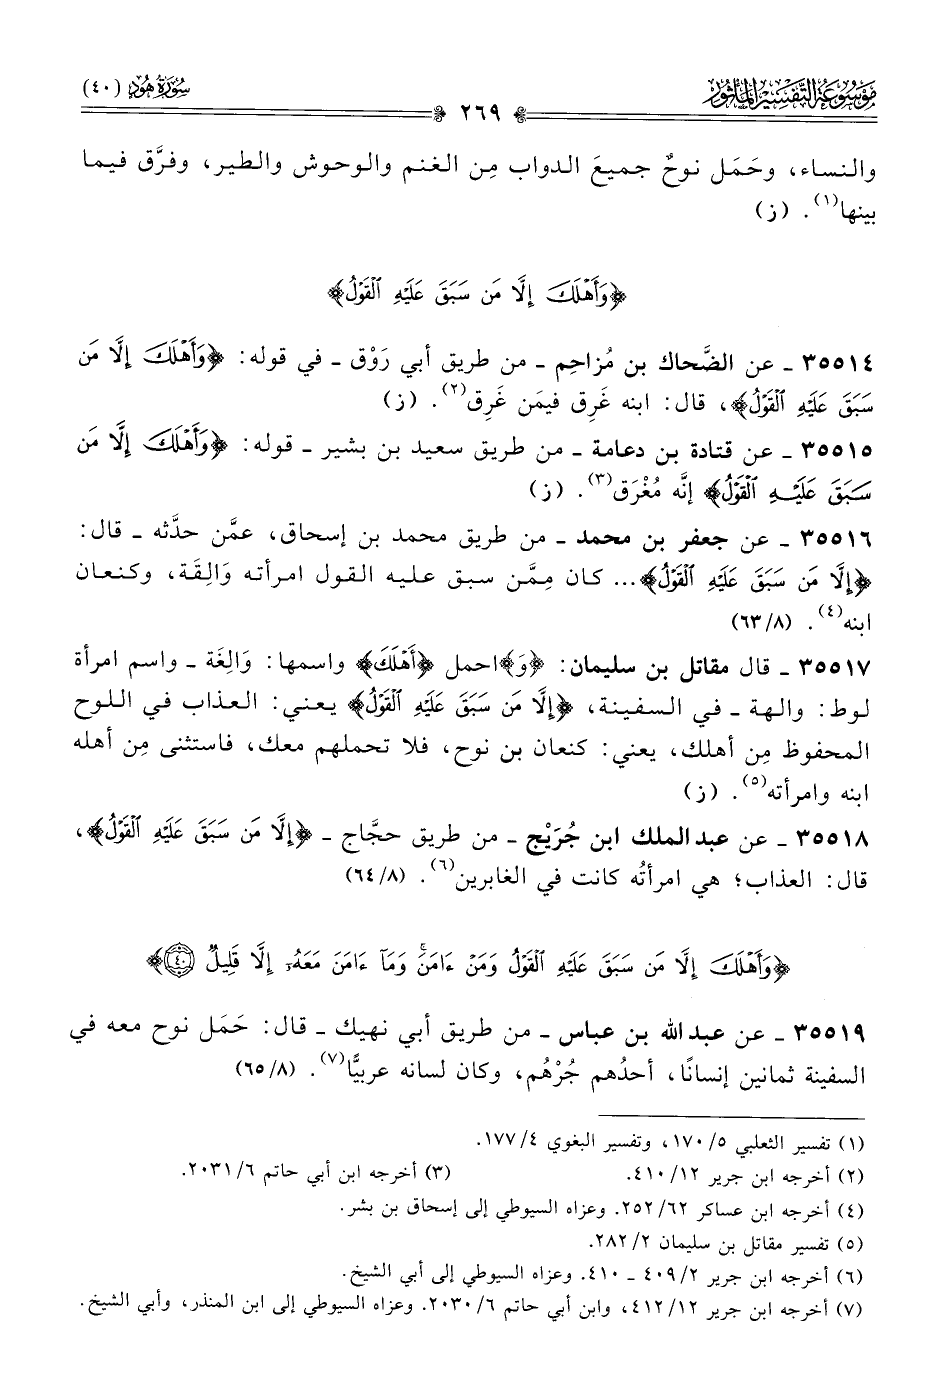 موسوعة التفسير المأثور
سورة هود (٤٠)
٢٦٩
والنساء، وحَمَل نوحٌ جميعَ الدواب مِن الغنم والوحوش والطير، وفرَّق فيما
بينها(١). (ز)
﴿وَأَهْلَكَ إِلَّا مَن سَبَقَ عَلَيْهِ ٱلْقَوْلُ﴾
٣٥٥١٤ ـ عن الضَّحاك بن مُزاحِم ـ من طريق أبي رَوْق ـ في قوله: ﴿وَأَهْلَكَ إِلَّا مَن
سَبَقَ عَلَيْهِ ٱلْقَوْلُ﴾، قال: ابنه غَرِق فيمَن غَرِق(٢). (ز)
٣٥٥١٥ ـ عن قتادة بن دعامة ـ من طريق سعيد بن بشير ـ قوله: ﴿وَأَهْلَكَ إِلَّا مَن
سَبَقَ عَلَيْهِ ٱلْقَوْلُ﴾ إنَّه مُغْرَق(٣). (ز)
٣٥٥١٦ ـ عن جعفر بن محمد ـ من طريق محمد بن إسحاق، عمَّن حدَّثه ـ قال:
﴿إِلَّا مَن سَبَقَ عَلَيْهِ ٱلْقَوْلُ﴾... كان مِمَّن سبق عليه القول امرأته وَالِقَة، وكنعان
ابنه(٤). (٨/ ٦٣)
٣٥٥١٧ ـ قال مقاتل بن سليمان: ﴿وَ﴾احمل ﴿أَهْلَكَ﴾ واسمها: وَالِغَة ـ واسم امرأة
لوط: والهة ـ في السفينة، ﴿إِلَّا مَن سَبَقَ عَلَيْهِ ٱلْقَوْلُ﴾ يعني: العذاب في اللوح
المحفوظ مِن أهلك، يعني: كنعان بن نوح، فلا تحملهم معك، فاستثنى مِن أهله
ابنه وامرأته(٥). (ز)
٣٥٥١٨ ـ عن عبد الملك ابن جُرَيْج ـ من طريق حجَّاج ـ ﴿إِلَّا مَن سَبَقَ عَلَيْهِ ٱلْقَوْلُ﴾،
قال: العذاب؛ هي امرأتُه كانت في الغابرين(٦). (٨/ ٦٤)
﴿وَأَهْلَكَ إِلَّا مَن سَبَقَ عَلَيْهِ ٱلْقَوْلُ وَمَنْ ءَامَنَۚ وَمَآ ءَامَنَ مَعَهُۥٓ إِلَّا قَلِيلٌ ۝٤٠﴾
٣٥٥١٩ ـ عن عبد الله بن عباس ـ من طريق أبي نهيك ـ قال: حَمَل نوح معه في
السفينة ثمانين إنسانًا، أحدُهم جُرْهُم، وكان لسانه عربيًّا(٧). (٨/ ٦٥)
(١) تفسير الثعلبي ٥/ ١٧٠، وتفسير البغوي ٤/ ١٧٧.
(٢) أخرجه ابن جرير ١٢/ ٤١٠. (٣) أخرجه ابن أبي حاتم ٦/ ٢٠٣١.
(٤) أخرجه ابن عساكر ٦٢/ ٢٥٢. وعزاه السيوطي إلى إسحاق بن بشر.
(٥) تفسير مقاتل بن سليمان ٢/ ٢٨٢.
(٦) أخرجه ابن جرير ٢/ ٤٠٩ ـ ٤١٠. وعزاه السيوطي إلى أبي الشيخ.
(٧) أخرجه ابن جرير ١٢/ ٤١٢، وابن أبي حاتم ٦/ ٢٠٣٠. وعزاه السيوطي إلى ابن المنذر، وأبي الشيخ.